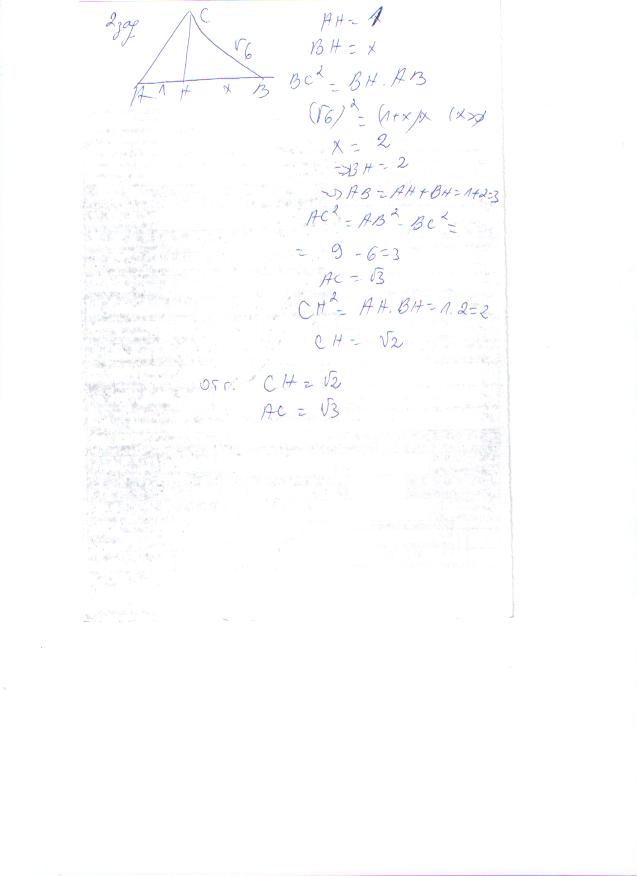 2 зад
C
√6
A 1 H x B
AH = 1
BH = x
BC² = BH . AB
(√6)² = (1+x)x (x>0)
x = 2
=> BH = 2
=> AB = AH + BH = 1+2=3
AC² = AB² - BC² =
= 9 - 6 = 3
AC = √3
CH² = AH. BH = 1. 2 = 2
CH = √2
отг: CH = √2
AC = √3